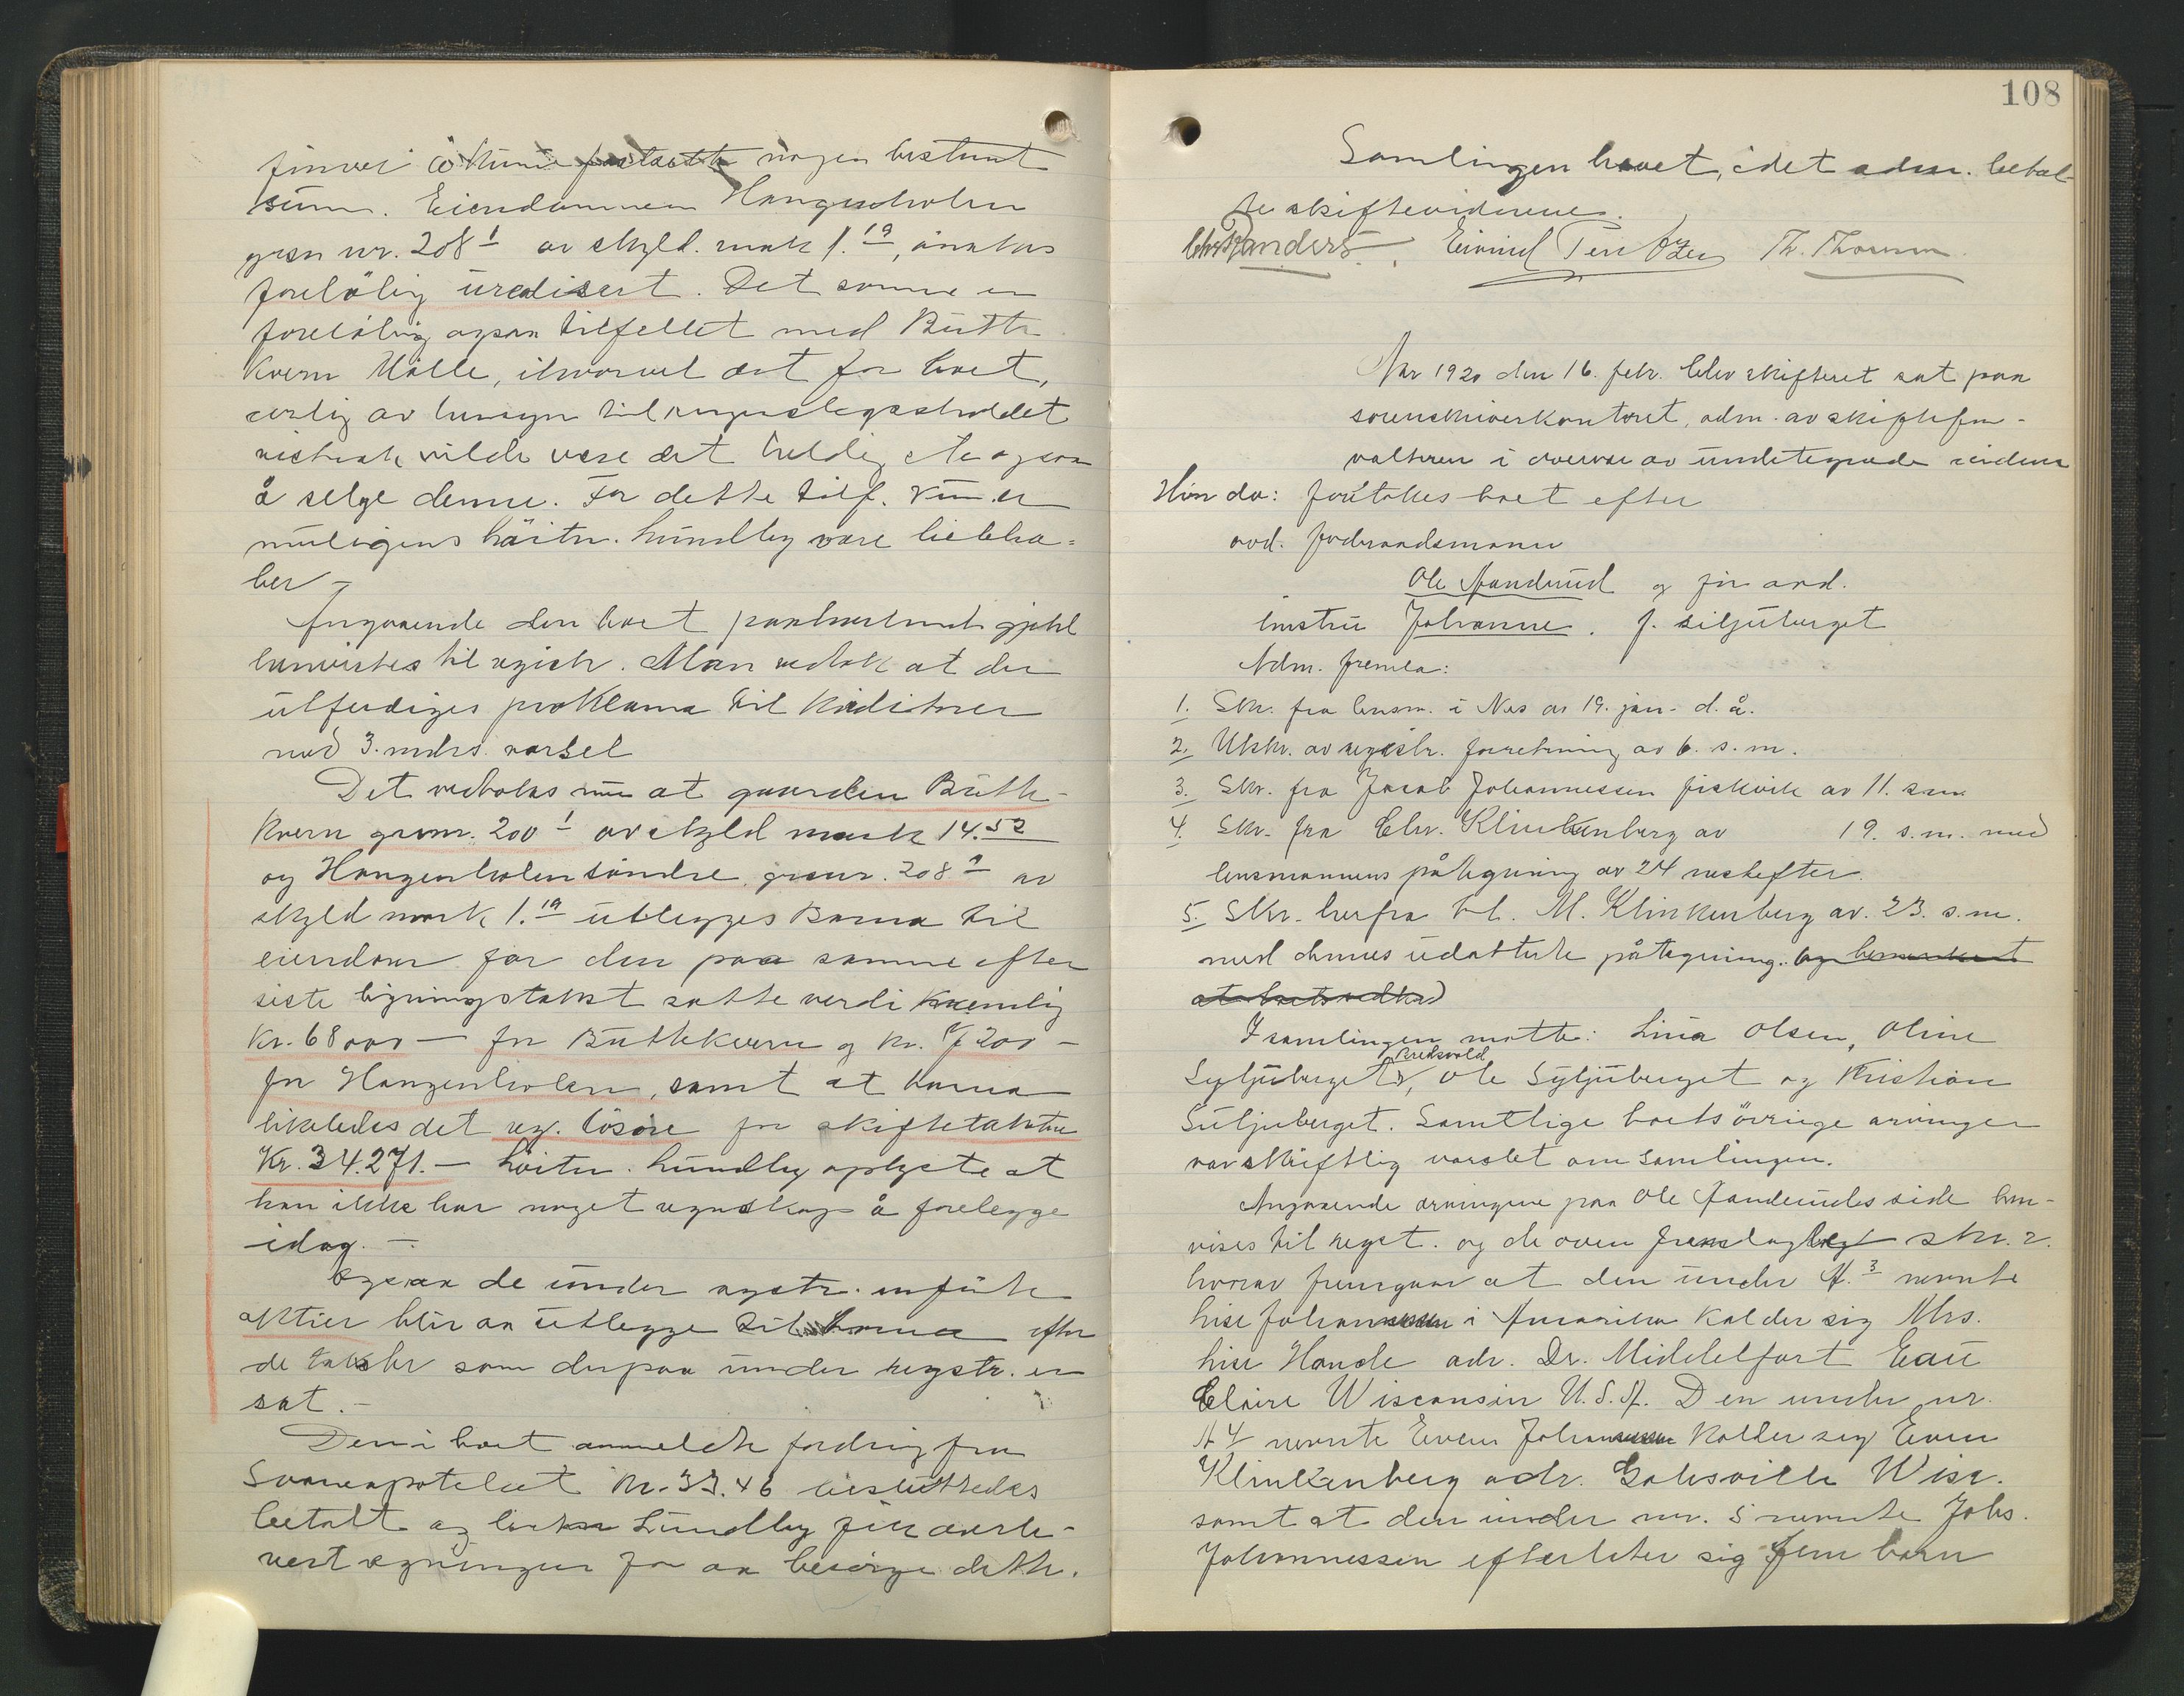 finner å kunne fastsætte nogen bestemt
sum. Eiendommen Haugenholen
grsn nr. 208¹ av skyld. mark 1.19, ansees
foreløbig urealisert. Det samme er
foreløbig ogsaa tilfellet med Butte
kvern Mølle, ihvorvel det for boet,
særlig av hensyn til regnskapsholdet
vilde være det heldigste ogsaa
å selge denne. For dette tilf. vun er
muligens höitn. Lundby være liebha-
ber –
Angaaende den boet paahvilende gjæld
henvistes til registr. Man vedtok at der
utferdiges proklama til kreditorer
med 3. mdrs. varsel
Det vedtokes nu at gaarden Butte-
kvern grsnr. 200¹ av skyld mark 14.52
og Haugenholen søndre grsnr. 208¹ av
skyld mark 1.19 utlegges Borna til
eiendom for den paa samme efter
siste ligningstakst satte verdi nemlig
Kr. 68000 – for Buttekvern og kr. 200 –
for Haugenholen, samt at borna
likeledes det reg. lösöre for skiftetakstene
Kr. 34.271. – höitn. Lundby oplyste at
han ikke har noget regnskap å forelegge
idag. –
Ogsaa de under registr. anførte
aktier blir aa utlegge til borna efter
de takster som derpaa under registr. er
sat. –
Den i boet anmeldte fordring fra
Svaneapoteket kr. 33.46 besluttedes
betalt og Lundby fik overle-
vert regningen for aa besørge dette.
108
Samlingen hævet, idet adm. betal-
te skiftevidnene.
Chr Randers. Eivind Tentzen Th. Thoresen
Aar 1920 den 16. febr. blev skifteret sat paa
sorenskriverkontoret, adm. av skiftefor-
valteren i overvær av undertegnede vidner
Hvorda: foretokes boet efter
avd. foderaadsmann
Ole Aandrud og før avd.
hustru Johanne. f. siljuberget
Adm. fremla:
1. Skr. fra lensm. i Nes av 19. jan. d. å.
2. Utskr. av registr. forretning av 6. s. m.
3. Skr. fra Jacob Johannessen fiskvik av 11. s.m
4. Skr. fra Chr. Klinkenberg av 19. s. m. med
lensmannens påtegning av 24 næstefter.
5. Skr. herfra til M. Klinkenberg av. 23. s. m.
med dennes udatterte påtegning. og bemerket
at boets vedkom
I samlingen møtte: Lina Olsen, Oline
Syljuberget Bredvold, Ole Syljuberget og Kristian
Siljuberget. Samtlige boets øvrige arvinger
var skriftlig varslet om samlingen.
Angaaende arvingene paa Ole Aandruds side hen-
vises til regist. og de oven fremlagte skr. 2.
hvorav fremgaar at den under A. 3 nevnte
Lise Johannessen i Amerika kalder sig Mrs.
Lise Hande adr. Dr. Middelfart Eau
Claire Wisconsin U.S.A. Den under nr.
A 4 nevnte Even Johannessen kalder sig Even
Klinkenberg adr. Galesville Wisc.
samt at den under nr. 5 nevnte Johs.
Johannessen efterlater sig fem barn